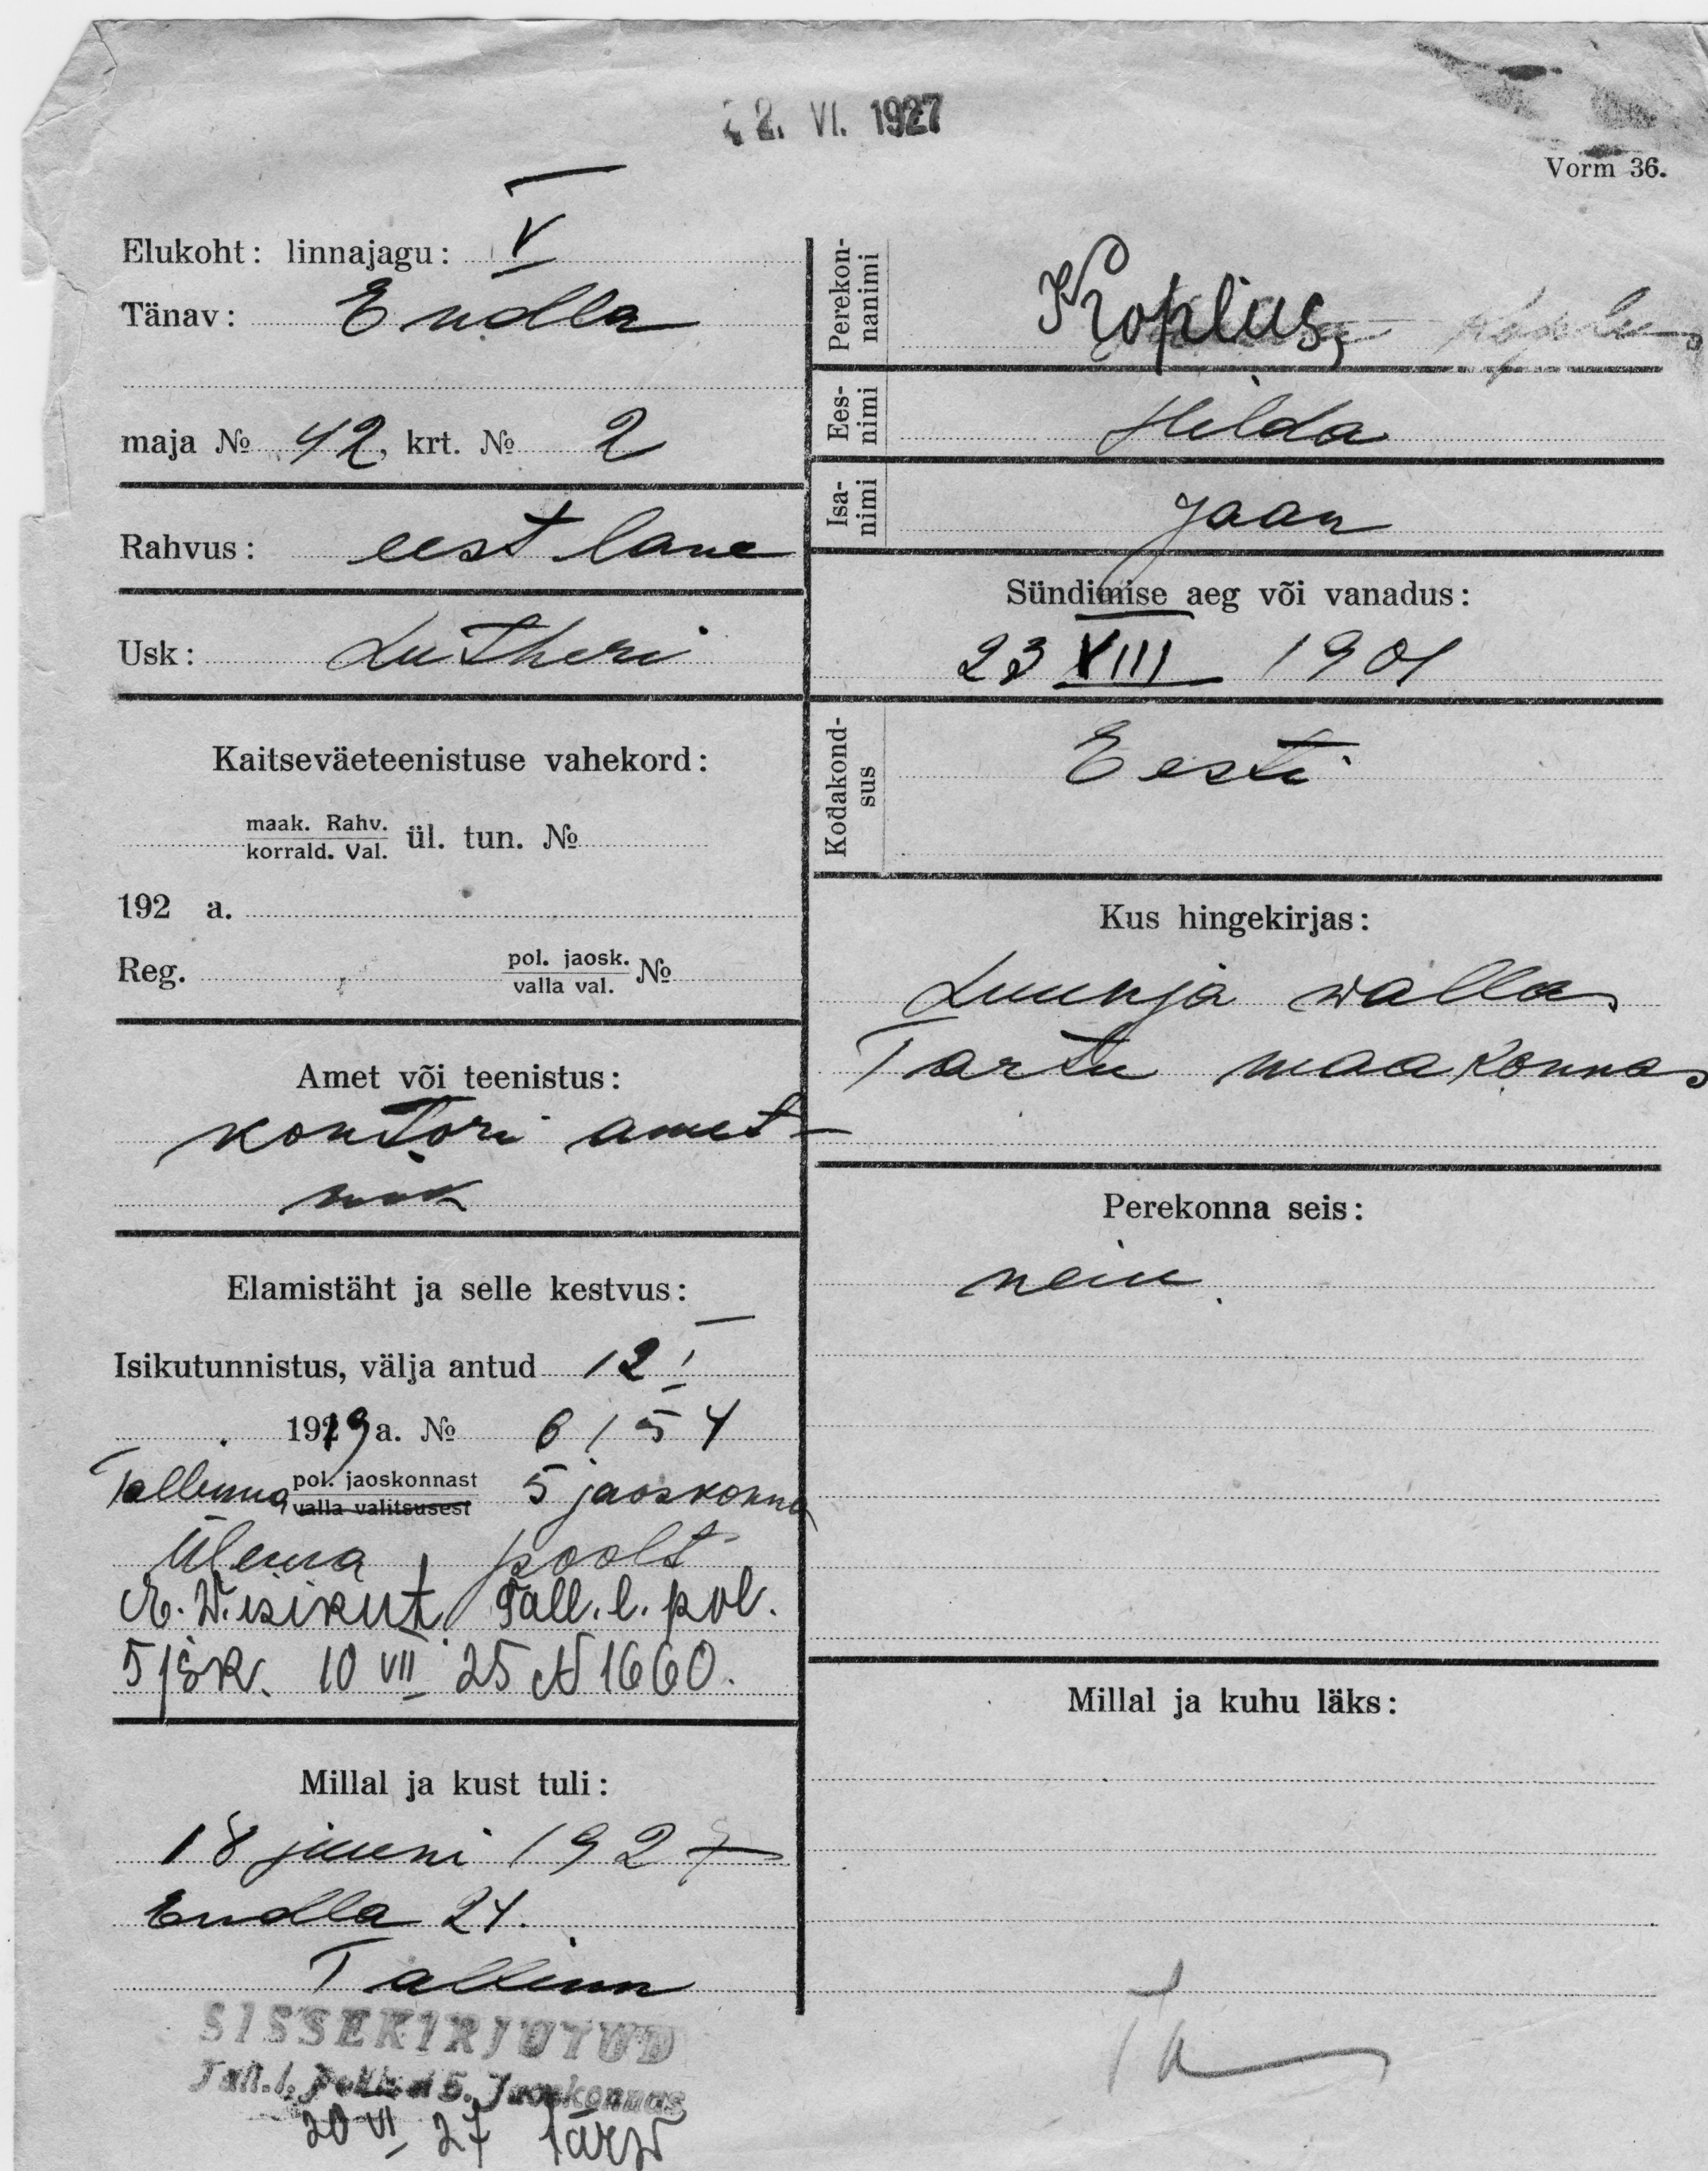 22. VI. 1927
Vorm 36.
Elukoht: linnajagu: V
Tänav: Endla
maja № 42, krt. № 2
Rahvus: eestlane
Usk: Lutheri
Kaitseväeteenistuse vahekord:
maak. Rahv.
korrald. Val. ül. tun. №
192 a.
Reg. pol. jaosk.
valla val. №
Amet või teenistus:
kontori amet-
nik
Elamistäht ja selle kestvus:
Isikutunnistus, välja antud 12 I
1919 a. № 6154
Tallinna pol. jaoskonnast 5 jaoskonna
valla valitsusest
Ülema poolt
E. W. isikut Tall. l. pol.
5 jsk. 10 VII 25 N 1660.
Millal ja kust tuli:
18 juuni 1927
Endla 24.
Tallinn
SISSEKIRJUTUD
Tall. l. Politsei 5. Jaoskonnas
20 VI 27
Perekon-
nanimi
Koplus,
Ees-
nimi
Hilda
Isa-
nimi
Jaan
Sündimise aeg või vanadus:
23 XIII 1901
Kodakond-
sus
Eesti
Kus hingekirjas:
Luunja wallas
Tartu maakonnas
Perekonna seis:
neiu.
Millal ja kuhu läks: